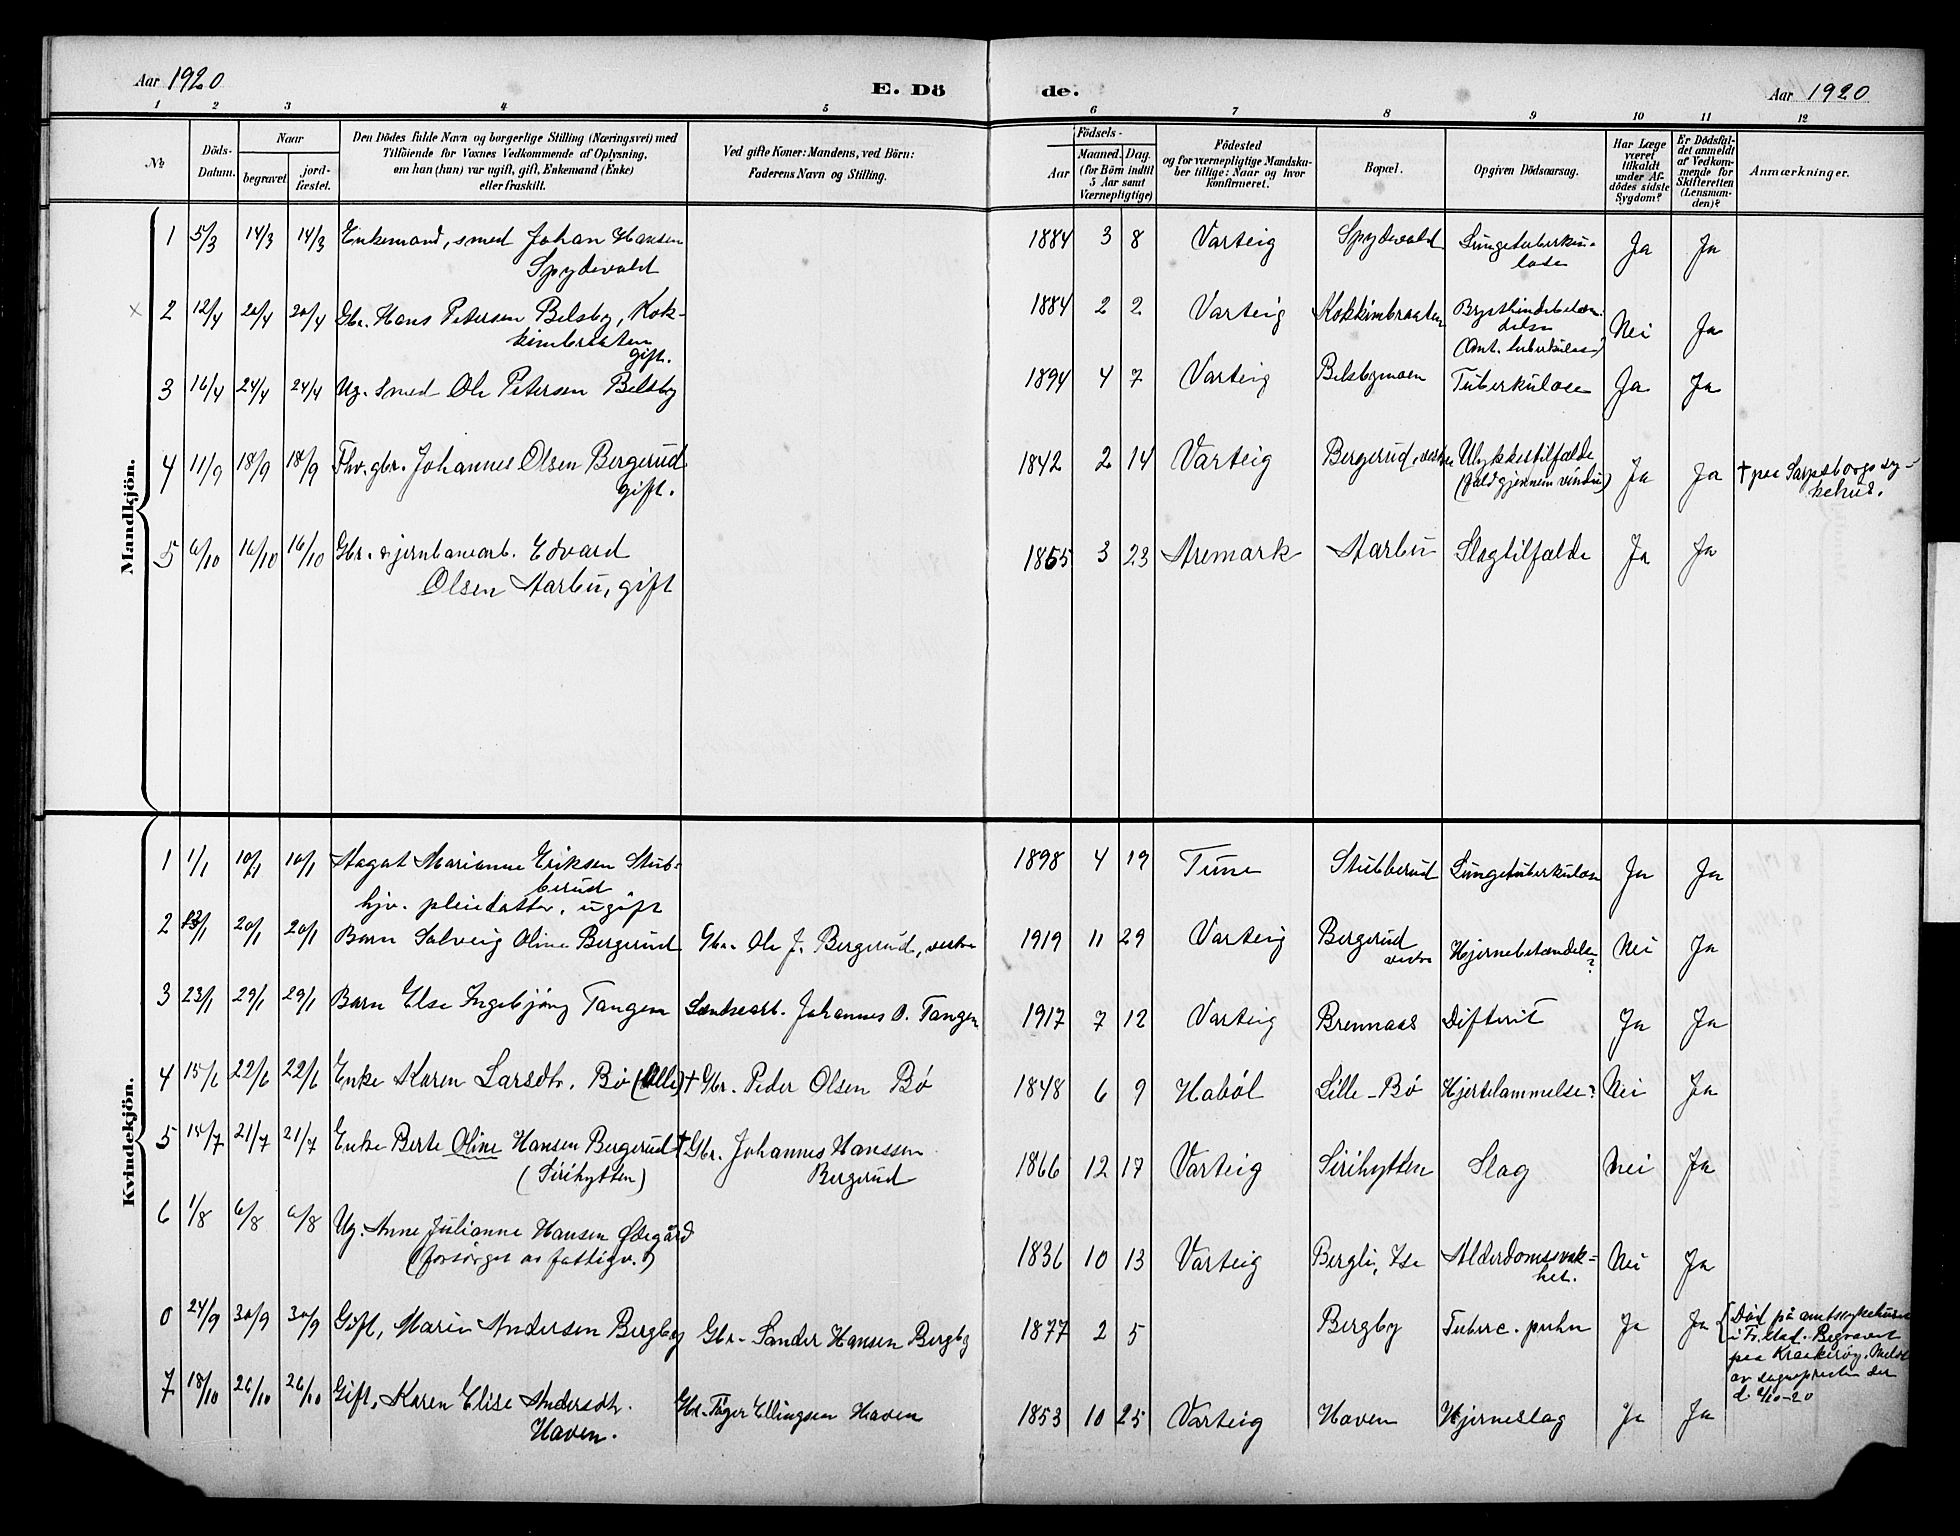 Aar 1920
E. Dö
de.
Aar 1920
1 2 3 4 5 6 7 8 9 10 11 12
№
Döds-
Datum.
Naar
begravet
jord-
fæstet.
Den Dödes fulde Navn og borgerlige Stilling (Næringsvei) med
Tilföiende for Voxnes Vedkommende af Oplysning,
om han (hun) var ugift, gift, Enkemand (Enke)
eller fraskilt.
Ved gifte Koner: Mandens, ved Börn:
Faderens Navn og Stilling.
Födsels-
Aar
Maaned. Dag.
(for Börn indtil
5 Aar samt
Værnepligtige)
Födested
og for værnepligtige Mandska-
ber tillige: Naar og hvor
konfirmeret.
Bopæl.
Opgiven Dödsaarsag.
Har Læge
været
tilkaldt
under Af-
dödes sidste
Sygdom?
Er Dödsfal-
det anmeldt
af Vedkom-
mende for
Skifteretten
(Lensman-
den)?
Anmærkninger.
Mandkjön.
1 5/3 14/3 14/3 Enkemand, smed Johan Hansen 1884 3 8 Varteig Spydevold Lungetuberku-
Spydevold lose Ja Ja
2 12/4 20/4 20/4 Gbr. Hans Petersen Belsby, Kok- 1884 2 2 Varteig Kokkimbraaten Brysthindebetæn-
kimbraaten delse Nei Ja
gift. (Ant. tuberkulose)
3 16/4 24/4 24/4 Ug. smed Ole Petersen Belsby 1894 4 7 Varteig Belsbymoen Tuberkulose Ja Ja
4 11/9 18/9 18/9 Fhv. gbr. Johannes Olsen Bergerud 1842 2 14 Varteig Bergerud, vestre Ulykkestilfælde Ja Ja † paa Sarpsborgs sy-
gift. (fald gjennem vindu) kehus.
5 6/10 16/10 16/10 Gbr. & jernbanearb. Edvard 1865 3 23 Aremark Aarbu Slagtilfælde Ja Ja
Olsen Aarbu, gift
Kvindekjön.
1 1/1 10/1 10/1 Aagot Marianne Eriksen Stub- 1898 4 19 Tune Stubberud Lungetuberkulose Ja Ja
berud
hjv. pleiedatter, ugift
2 13/1 20/1 20/1 Barn Solveig Oline Bergerud Gbr. Ole J. Bergerud, vestre 1919 11 29 Varteig Bergerud Hjernebetændelse Nei Ja
vestre ?
3 23/1 29/1 29/1 Barn Else Ingebjørg Tangen Landsearb. Johannes O. Tangen 1917 7 12 Varteig Brennaas Difterit Ja Ja
4 15/6 22/6 22/6 Enke Karen Larsdtr. Bö (Lille) † Gbr. Peder Olsen Bö 1848 6 9 Haböl Lille-Bö Hjertelammelse? Nei Ja
5 15/7 21/7 21/7 Enke Berte Oline Hansen Bergerud † Gbr. Johannes Hanssen 1866 12 17 Varteig Sirihytten Slag Nei Ja
(Sirihytten) Bergerud
6 1/8 6/8 6/8 Ug. Anne Julianne Hansen Ødegård
(forsörget av fattigv.) 1836 10 13 Varteig Bergli, Ise Alderdomssvak-
het. Nei Ja
0 24/9 30/9 30/9 Gift, Marie Andersen Bergby Gbr. Sander Hansen Bergby 1877 2 5 Bergby Tuberc. pulm Ja Ja Död på amtssykehuset
i Fr.stad. Begravet
paa Kraakeröy. Meldt
av sognepresten der
d. 2/10-20
7 18/10 26/10 26/10 Gift, Karen Elise Andersdtr. Gbr. Töger Ellingsen Haven 1853 10 25 Varteig Haven Hjerneslag Ja Ja
Haven.